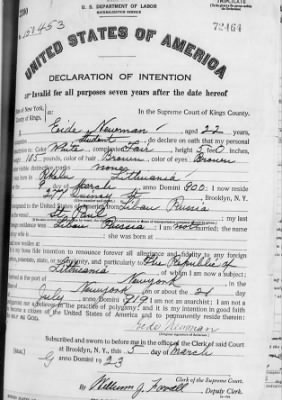 U. S. DEPARTMENT OF LABOR
NATURALIZATION SERVICE
No. 157453
72464
UNITED STATES OF AMERICA
DECLARATION OF INTENTION
Invalid for all purposes seven years after the date hereof
State of New York,
County of Kings,
In the Supreme Court of Kings County.
Newman, aged 22 years,
occupation student, do declare on oath that my personal
description is: Color White, complexion Fair, height 5 feet 0 inches,
weight 105 pounds, color of hair Brown, color of eyes Brown
other visible distinctive marks none
Lithuania
day of March, anno Domini 1900; I now reside
at Quincy St, Brooklyn, N. Y.
I emigrated to the United States of America from Libau Russia
on the vessel St Paul; my last
foreign residence was Libau Russia; I am not married; the name
she was born at
It is my bona fide intention to renounce forever all allegiance and fidelity to any foreign
prince, potentate, state, or sovereignty, and particularly to The Republic of
Lithuania, of whom I am now a subject;
I arrived at the port of New York, in the
State of New York, on or about the 2d day
of July, anno Domini 1919; I am not an anarchist; I am not a
polygamist nor a believer in the practice of polygamy; and it is my intention in good faith
to become a citizen of the United States of America and to permanently reside therein:
SO HELP ME GOD.
Newman
Subscribed and sworn to before me in the office of the Clerk of said Court
at Brooklyn, N. Y., this 5 day of March
[SEAL] anno Domini 1923
Clerk of the Supreme Court.
By William J. , Deputy Clerk.